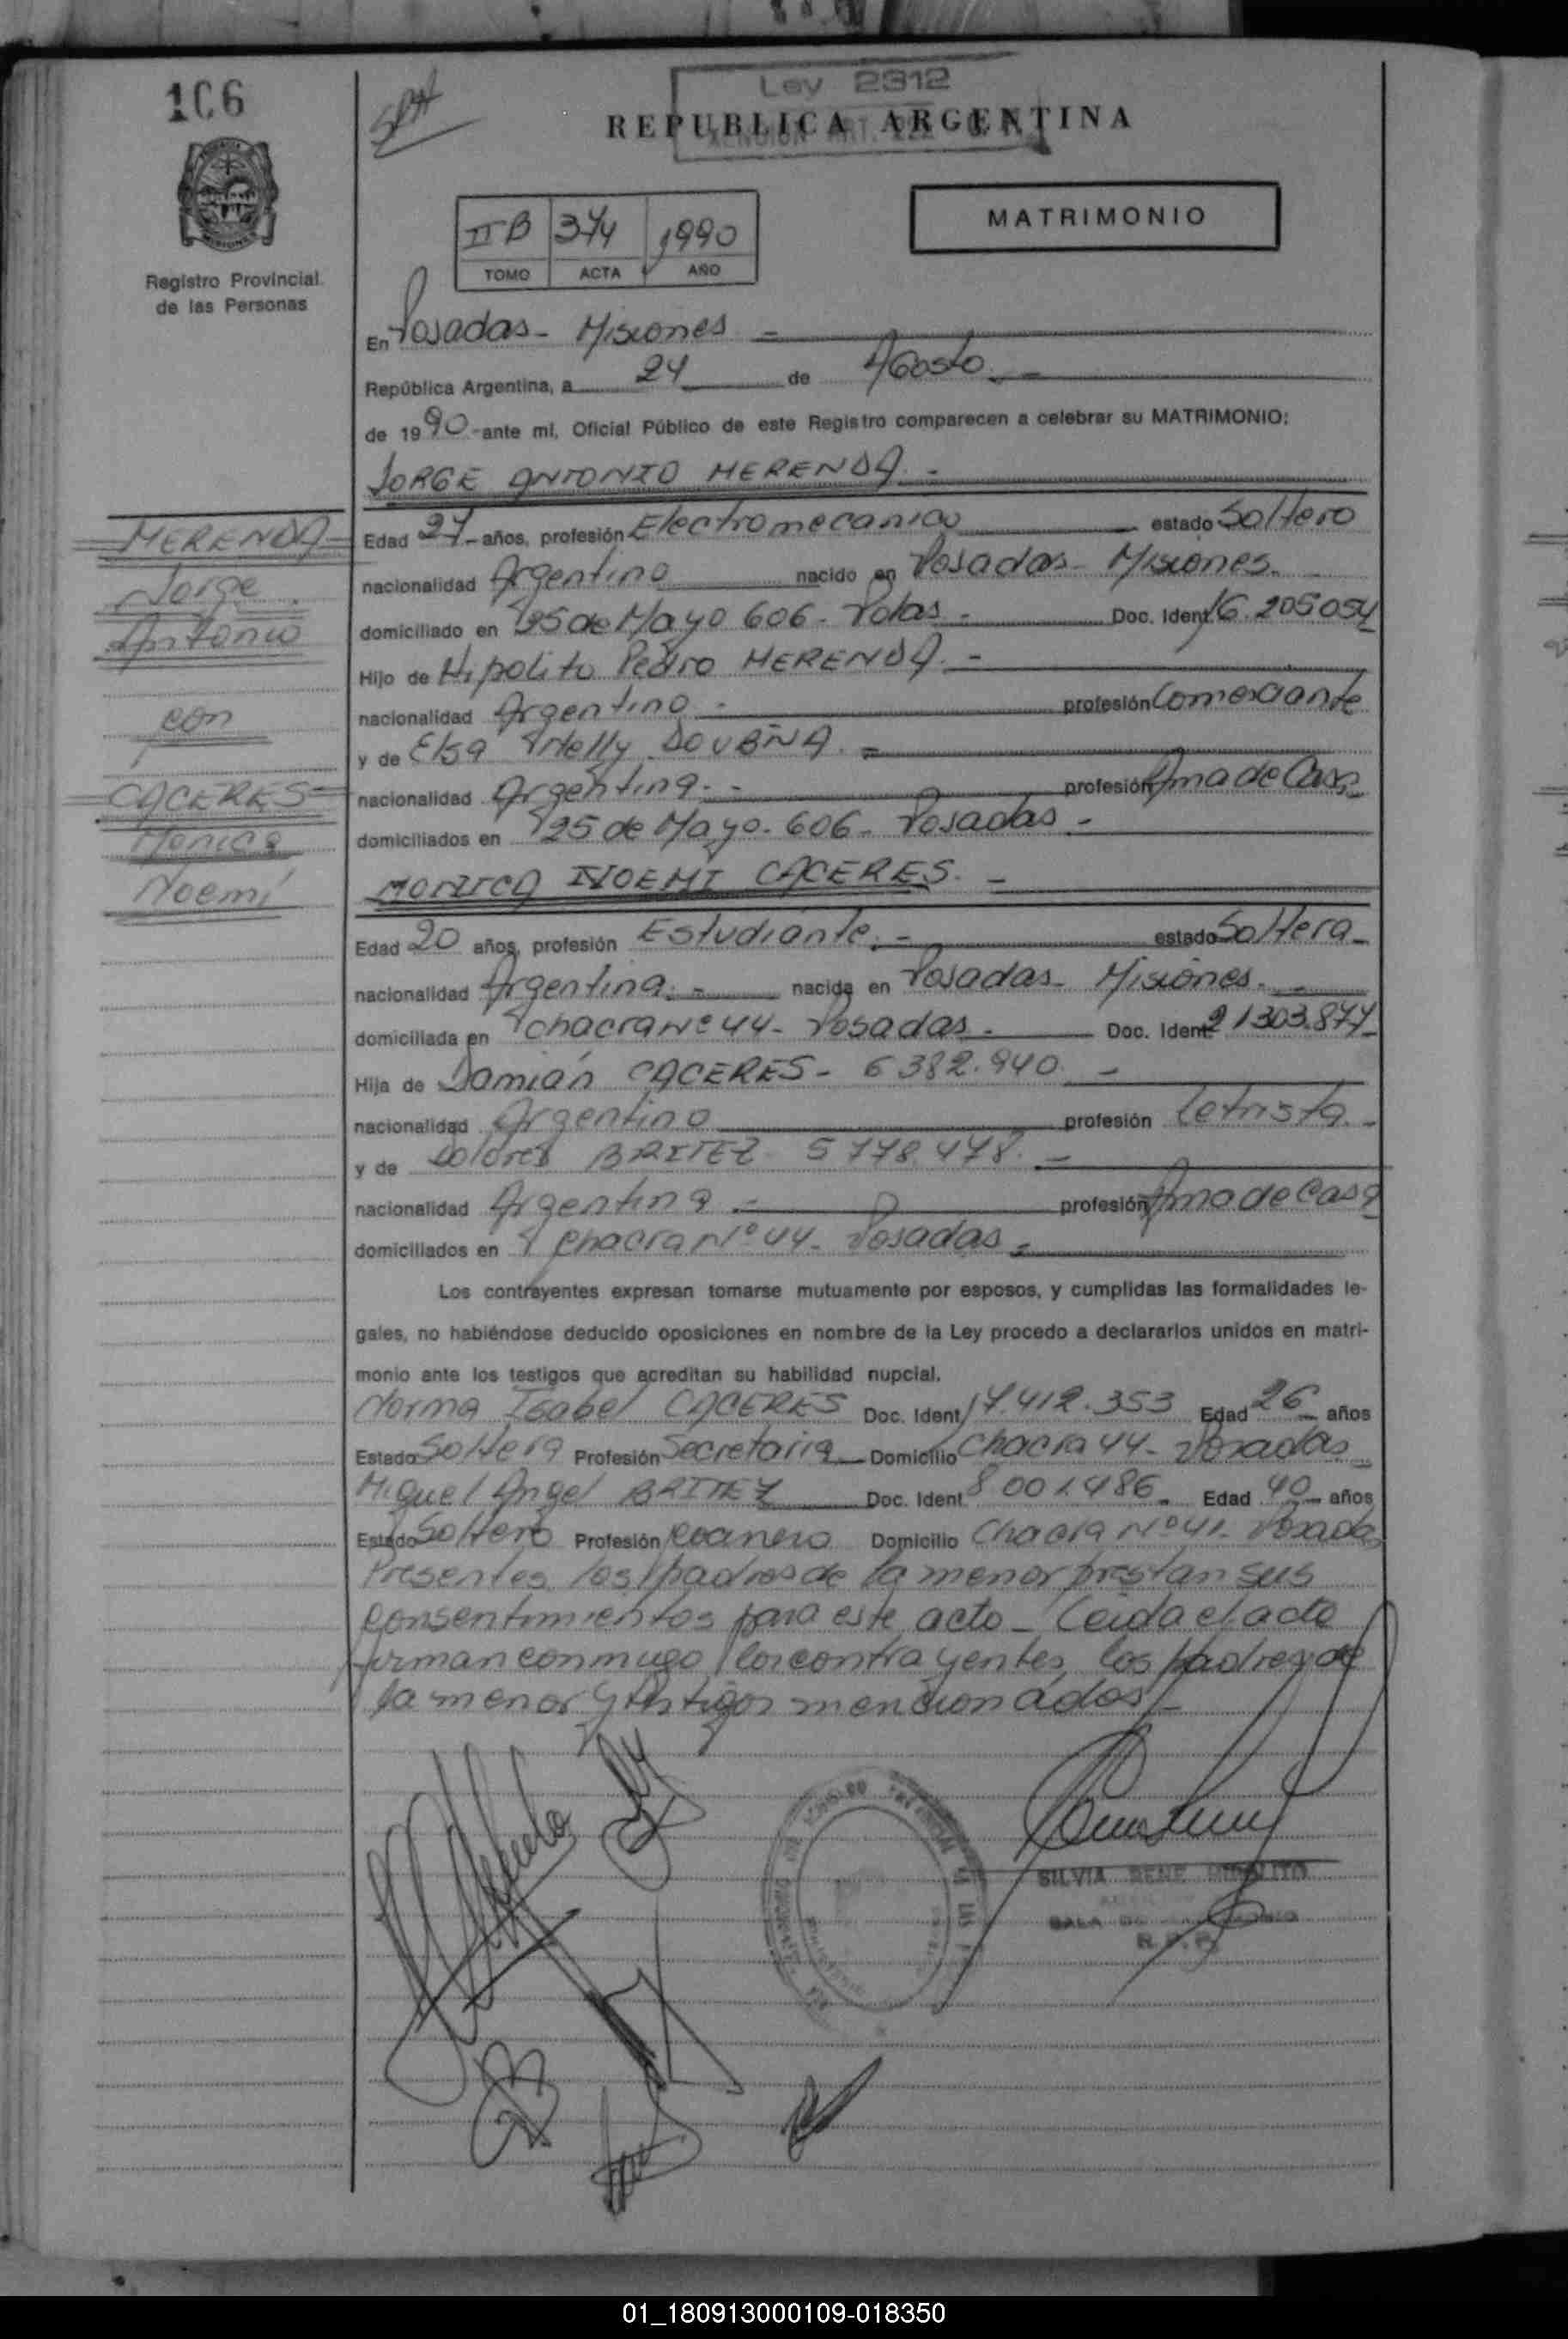 106
Ley 2312
REPUBLICA ARGENTINA
MATRIMONIO
II B 374 1990
TOMO ACTA AÑO
Registro Provincial
de las Personas
En Posadas - Misiones -
República Argentina, a 24 de Agosto. -
de 1990 - ante mí, Oficial Público de este Registro comparecen a celebrar su MATRIMONIO:
JORGE ANTONIO MERENDA. -
MERENDA
Jorge
Antonio
con
CACERES
Monica
Noemí
Edad 27 - años, profesión Electromecanico estado Soltero
nacionalidad Argentino nacido en Posadas - Misiones.
domiciliado en 25 de Mayo 606 - Pdas - Doc. Ident 16.205054
Hijo de Hipolito Pedro MERENDA. -
nacionalidad Argentino - profesión Comerciante
y de Elsa Nelly -
nacionalidad Argentina. - profesión Ama de Casa
domiciliados en 25 de Mayo - 606 - Posadas -
MONICA NOEMI CACERES. -
Edad 20 años, profesión Estudiante. - estado Soltera -
nacionalidad Argentina. - nacida en Posadas - Misiones. -
domiciliada en chacra Nº 44 - Posadas - Doc. Ident 21303.877 -
Hija de Damián CACERES - 6382.940 -
nacionalidad Argentino profesión letrista. -
y de Dolores BRITEZ 5778.478. -
nacionalidad Argentina - profesión Ama de Casa
domiciliados en chacra Nº 44 - Posadas -
Los contrayentes expresan tomarse mutuamente por esposos, y cumplidas las formalidades le-
gales, no habiéndose deducido oposiciones en nombre de la Ley procedo a declararlos unidos en matri-
monio ante los testigos que acreditan su habilidad nupcial.
Norma Isabel CACERES Doc. Ident 17.412.353 Edad 26 años
Estado Soltera Profesión Secretaria Domicilio Chacra 44 - Posadas
Miguel Angel BRITEZ Doc. Ident 8001.486 - Edad 40 años
Estado Soltero Profesión Domicilio Chacra Nº 41 - Posadas
Presentes los padres de la menor prestan sus
consentimientos para este acto - Leida el acta
firman conmigo los contrayentes, los padres de
la menor y testigos mencionados -
SILVIA RENE HIPOLITO
SALA DE
R.P.P.
01_180913000109-018350